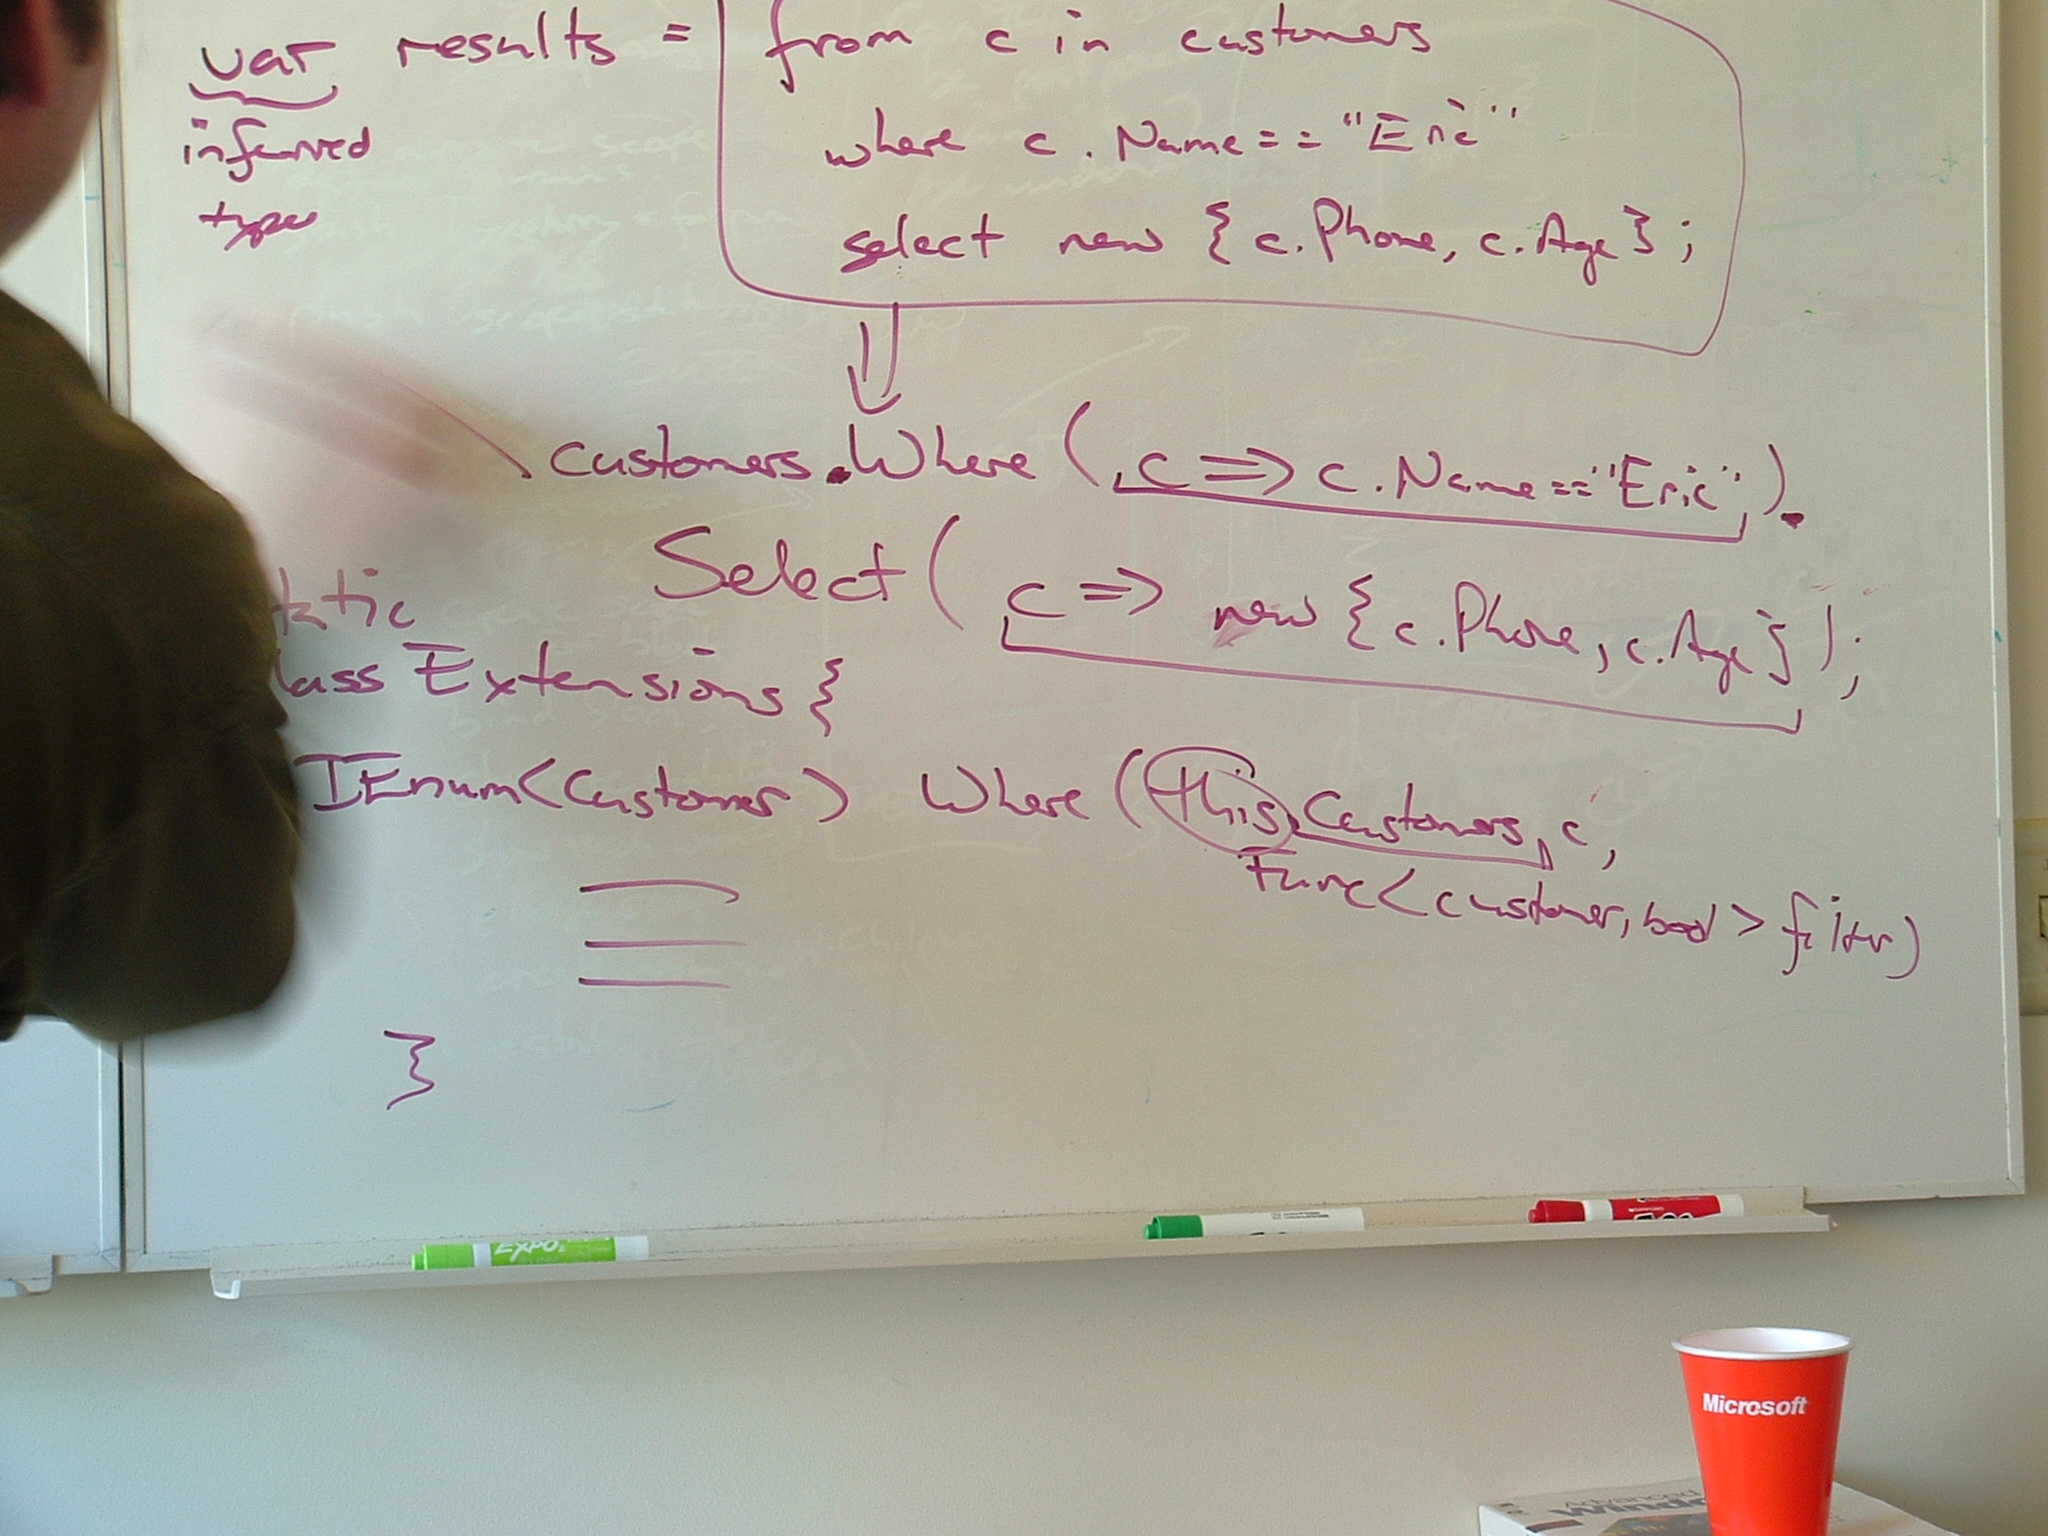 var results = from c in customers
inferred where c.Name == "Eric"
type select new { c.Phone, c.Age };
customers.Where ( c => c.Name == "Eric" ).
Select ( c => new { c.Phone, c.Age } );
tatic
lass Extensions {
IEnum<Customer> Where ( this Customers, c,
Func<customer, bool> filter)
}
EXPO
Microsoft
Advanced
Windo